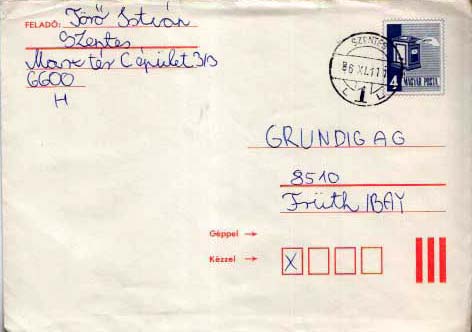 FELADÓ: Törő István
Szentes
Marx tér C épület 3/B
6600
H
SZENTES
86 XI.11
1
4 MAGYAR POSTA
GRUNDIG AG
8510
Früth /BAY
Géppel →
Kézzel → X